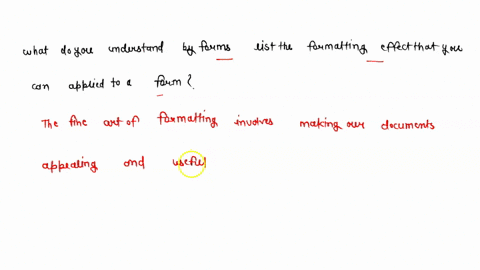 what do you understand by forms list the formatting effect that you
can applied to a form?
The fine art of formatting involves making our documents
appealing and useful